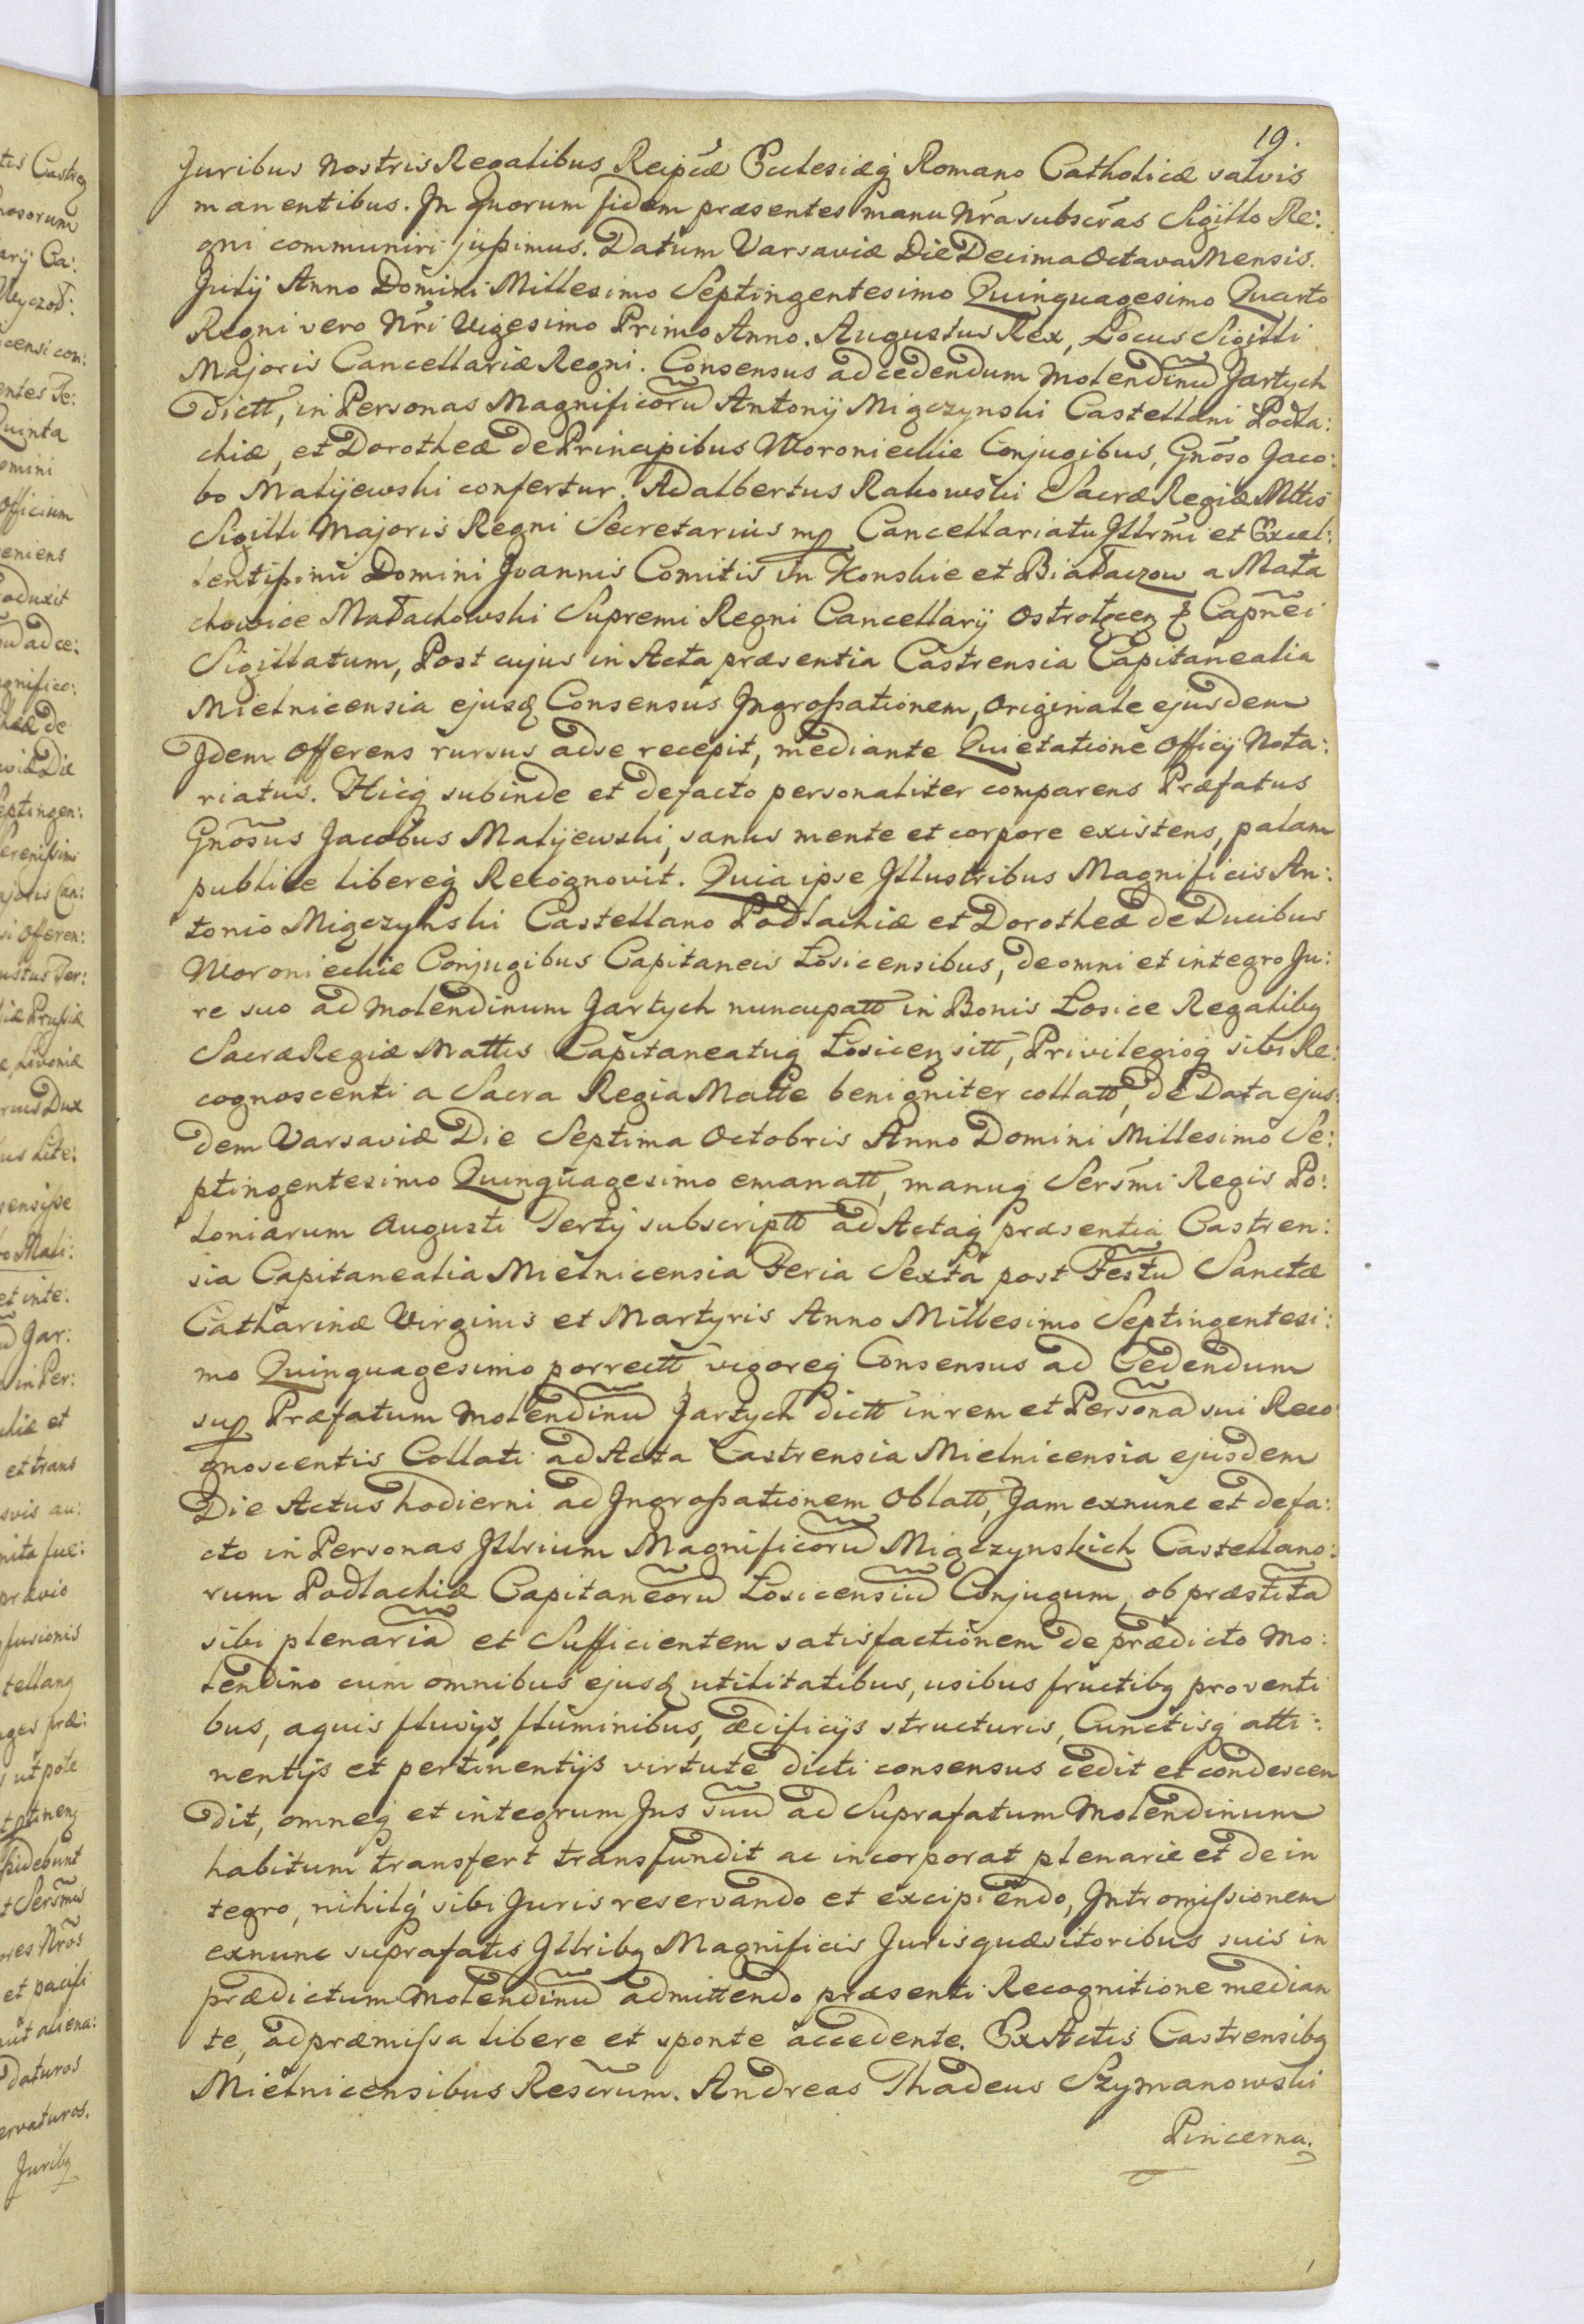 19.
Juribus Nostris Regalibus Reipcæ Ecclesiæq Romano Catholicæ salvis
manentibus. In Quorum fidem præsentes manu Nra subscras Sigillo Re:
gni communiri jussimus. Datum Varsaviæ Die Decima Octava Mensis
Julij Anno Domini Millesimo Septingentesimo Quinquagesimo Quarto
Regni vero Nri Vigesimo Primo Anno. Augustus Rex, Locus Sigilli
Majoris Cancellariæ Regni. Consensus ad cedendum Molendinu Jartych
dictt, in Personas Magnificoru Antonij Miączynski Castellani Podla:
chiæ, et Dorotheæ de Principibus Woroniechie Conjugibus, Gnoso Jaco:
bo Malijewski confertur. Adalbertus Rakowski Sacræ Regiæ Mttis
Sigilli Majoris Regni Secretarius mp Cancellariatu Illrmi et Excel:
lentissimi Domini Joannis Comitis in Konskie et Białaczow a Mała
chowice Małachowski Supremi Regni Cancellarij Ostrołęcen Capnei
Sigillatum, Post cujus in Acta præsentia Castrensia Capitanealia
Mielnicensia ejusq Consensus Ingrossationem, Originale ejusdem
Idem Offerens rursus ad se recepit, mediante Quietatione Officij Nota:
riatus. Hicq subinde et defacto personaliter comparens Præfatus
Gnosus Jacobus Malijewski, sanus mente et corpore existens, palam
publice libereq Recognovit. Quia ipse Illustribus Magnificis An:
tonio Miączynski Castellano Podlachiæ et Dorotheæ de Ducibus
Woroniechie Conjugibus Capitaneis Łosicensibus, de omni et integro Ju:
re suo ad Molendinum Jartych nuncupatt in Bonis Łosice Regalibq
Sacræ Regiæ Mattis Capitaneatuq Łosicen sitt, Privilegioq sibi Re:
cognoscenti a Sacra Regia Matte benigniter collatt, de Data ejus:
dem Varsaviæ Die Septima Octobris Anno Domini Millesimo Se:
ptingentesimo Quinquagesimo emanatt, manuq Sersmi Regis Po:
loniarum Augusti Tertij subscriptt ad Actaq præsentia Castren:
sia Capitanealia Mielnicensia Feria Sexta post Festu Sanctæ
Catharinæ Virginis et Martyris Anno Millesimo Septingentesi:
mo Quinquagesimo porrectt vigoreq Consensus ad Cedendum
sup Præfatum Molendinu Jartych dictt in rem et Persona sui Reco
gnoscentis Collati ad Acta Castrensia Mielnicensia ejusdem
Die Actus hodierni ad Ingrossationem Oblatt, Jam exnunc et defa:
cto in Personas Illrium Magnificoru Miączynskich Castellano:
rum Podlachiæ Capitaneoru Łosicensiu Conjugum, ob præstita
sibi plenaria et Sufficientem satisfactionem de prædicto Mo:
lendino cum omnibus ejusq utilitatibus, usibus fructibq proventi
bus, aquis fluvijs, fluminibus, ædificijs structuris, Cunctisq atti:
nentijs et pertinentijs virtute dicti consensus cedit et condescen
dit, omneq et integrum Jus suu ad Suprafatum Molendinum
habitum transfert transfundit ac incorporat plenarie et de in
tegro, nihilq sibi Juris reservando et excipiendo, Intromissionem
exnunc suprafatis Illribq Magnificis Jurisquæsitoribus suis in
prædictum Molendinu admittendo præsenti Recognitione median
te, ad præmissa libere et sponte accedente. Ex Actis Castrensibq
Mielnicensibus Rescrum. Andreas Thadeus Szymanowski
Pincerna.